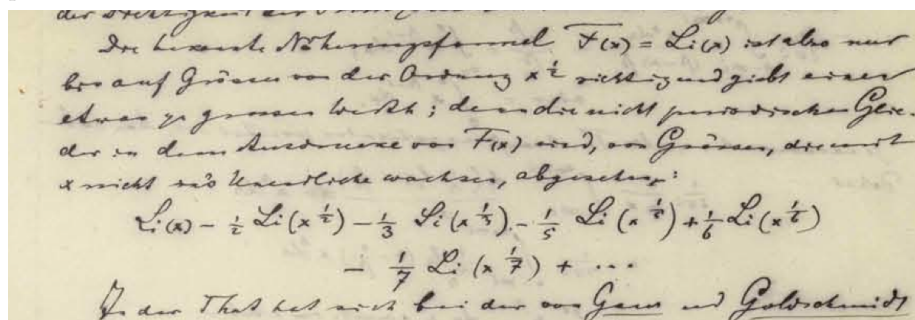 der Dichtigkeit der
Die bekannte Näherungsformel F(x) = Li(x) ist also nur
bis auf Grössen von der Ordnung x^½ richtig und giebt einen
etwas zu grossen Werth; denn die nicht periodischen Glie-
der in dem Ausdrucke von F(x) sind, von Grössen, die mit
x nicht in's Unendliche wachsen, abgesehen:
Li(x) − ½ Li(x^½) − ⅓ Li(x^⅓) − ⅕ Li(x^⅕) + ⅙ Li(x^⅙)
− 1/7 Li(x^1/7) + ···
In der That hat sich bei der von Gauss und Goldschmidt